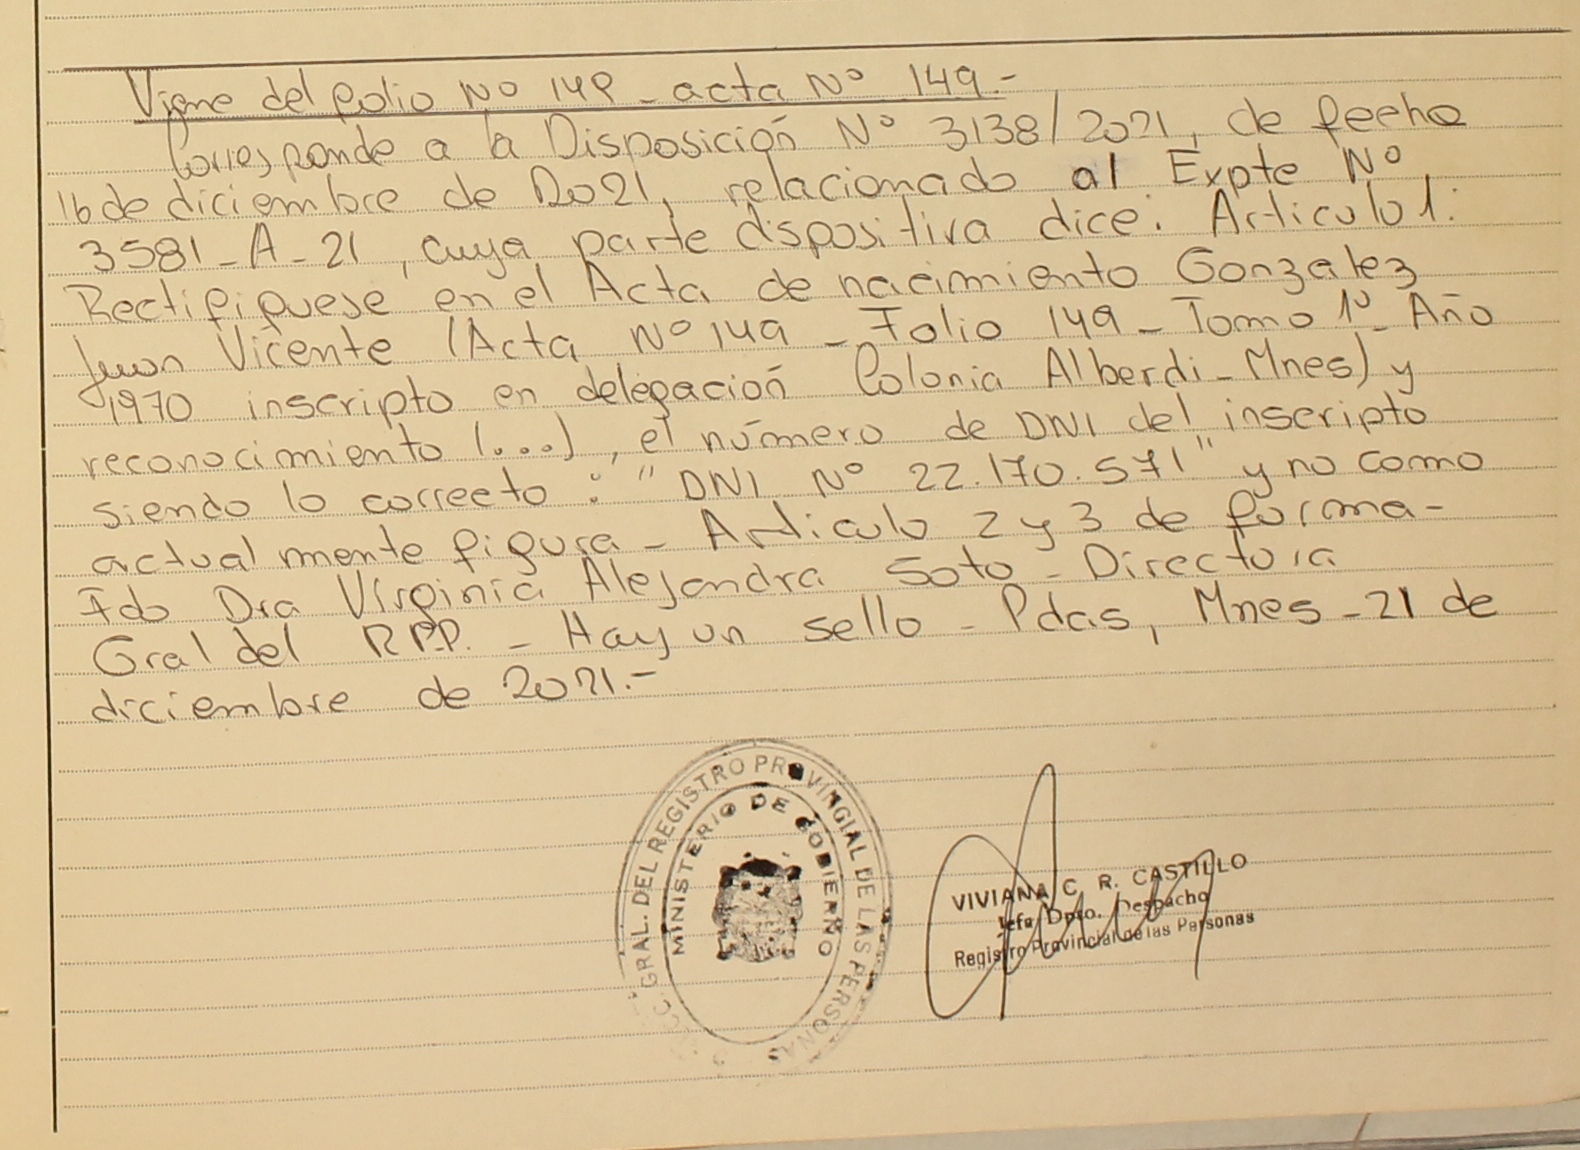 Viene del folio Nº 149 - acta Nº 149.-
Corresponde a la Disposición Nº 3138/2021, de fecha
16 de diciembre de 2021, relacionado al Expte Nº
3581-A-21, cuya parte dispositiva dice: Articulo 1:
Rectifiquese en el Acta de nacimiento Gonzalez
Juan Vicente (Acta Nº 149 - Folio 149 - Tomo 1º - Año
1970 inscripto en delegación Colonia Alberdi - Mnes) y
reconocimiento (...), el número de DNI del inscripto
siendo lo correcto: "DNI Nº 22.170.571" y no como
actualmente figura - Articulo 2 y 3 de forma-
Fdo Dra Virginia Alejandra Soto - Directora
Gral del R.P.P. - Hay un sello - Pdas, Mnes - 21 de
diciembre de 2021.-
GRAL. DEL REGISTRO PROVINCIAL DE LAS PERSONAS
MINISTERIO DE GOBIERNO
VIVIANA C. R. CASTILLO
Jefa Dpto. Despacho
Registro Provincial de las Personas